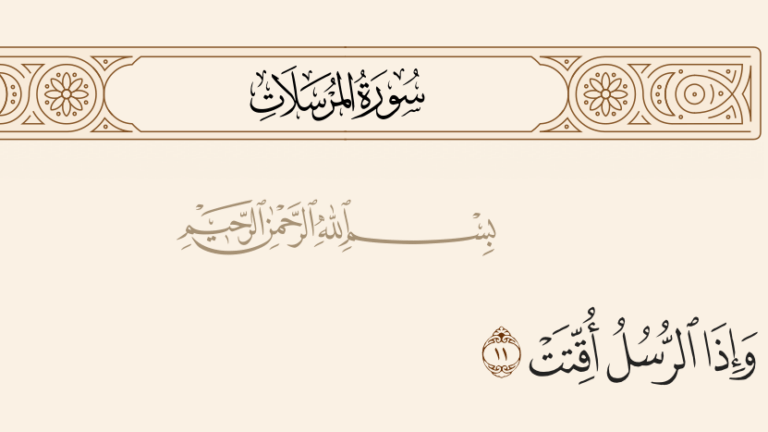 سُورَةُ المُرْسَلَاتِ
بِسْمِ ٱللَّهِ ٱلرَّحْمَٰنِ ٱلرَّحِيمِ
وَإِذَا ٱلرُّسُلُ أُقِّتَتْ ١١